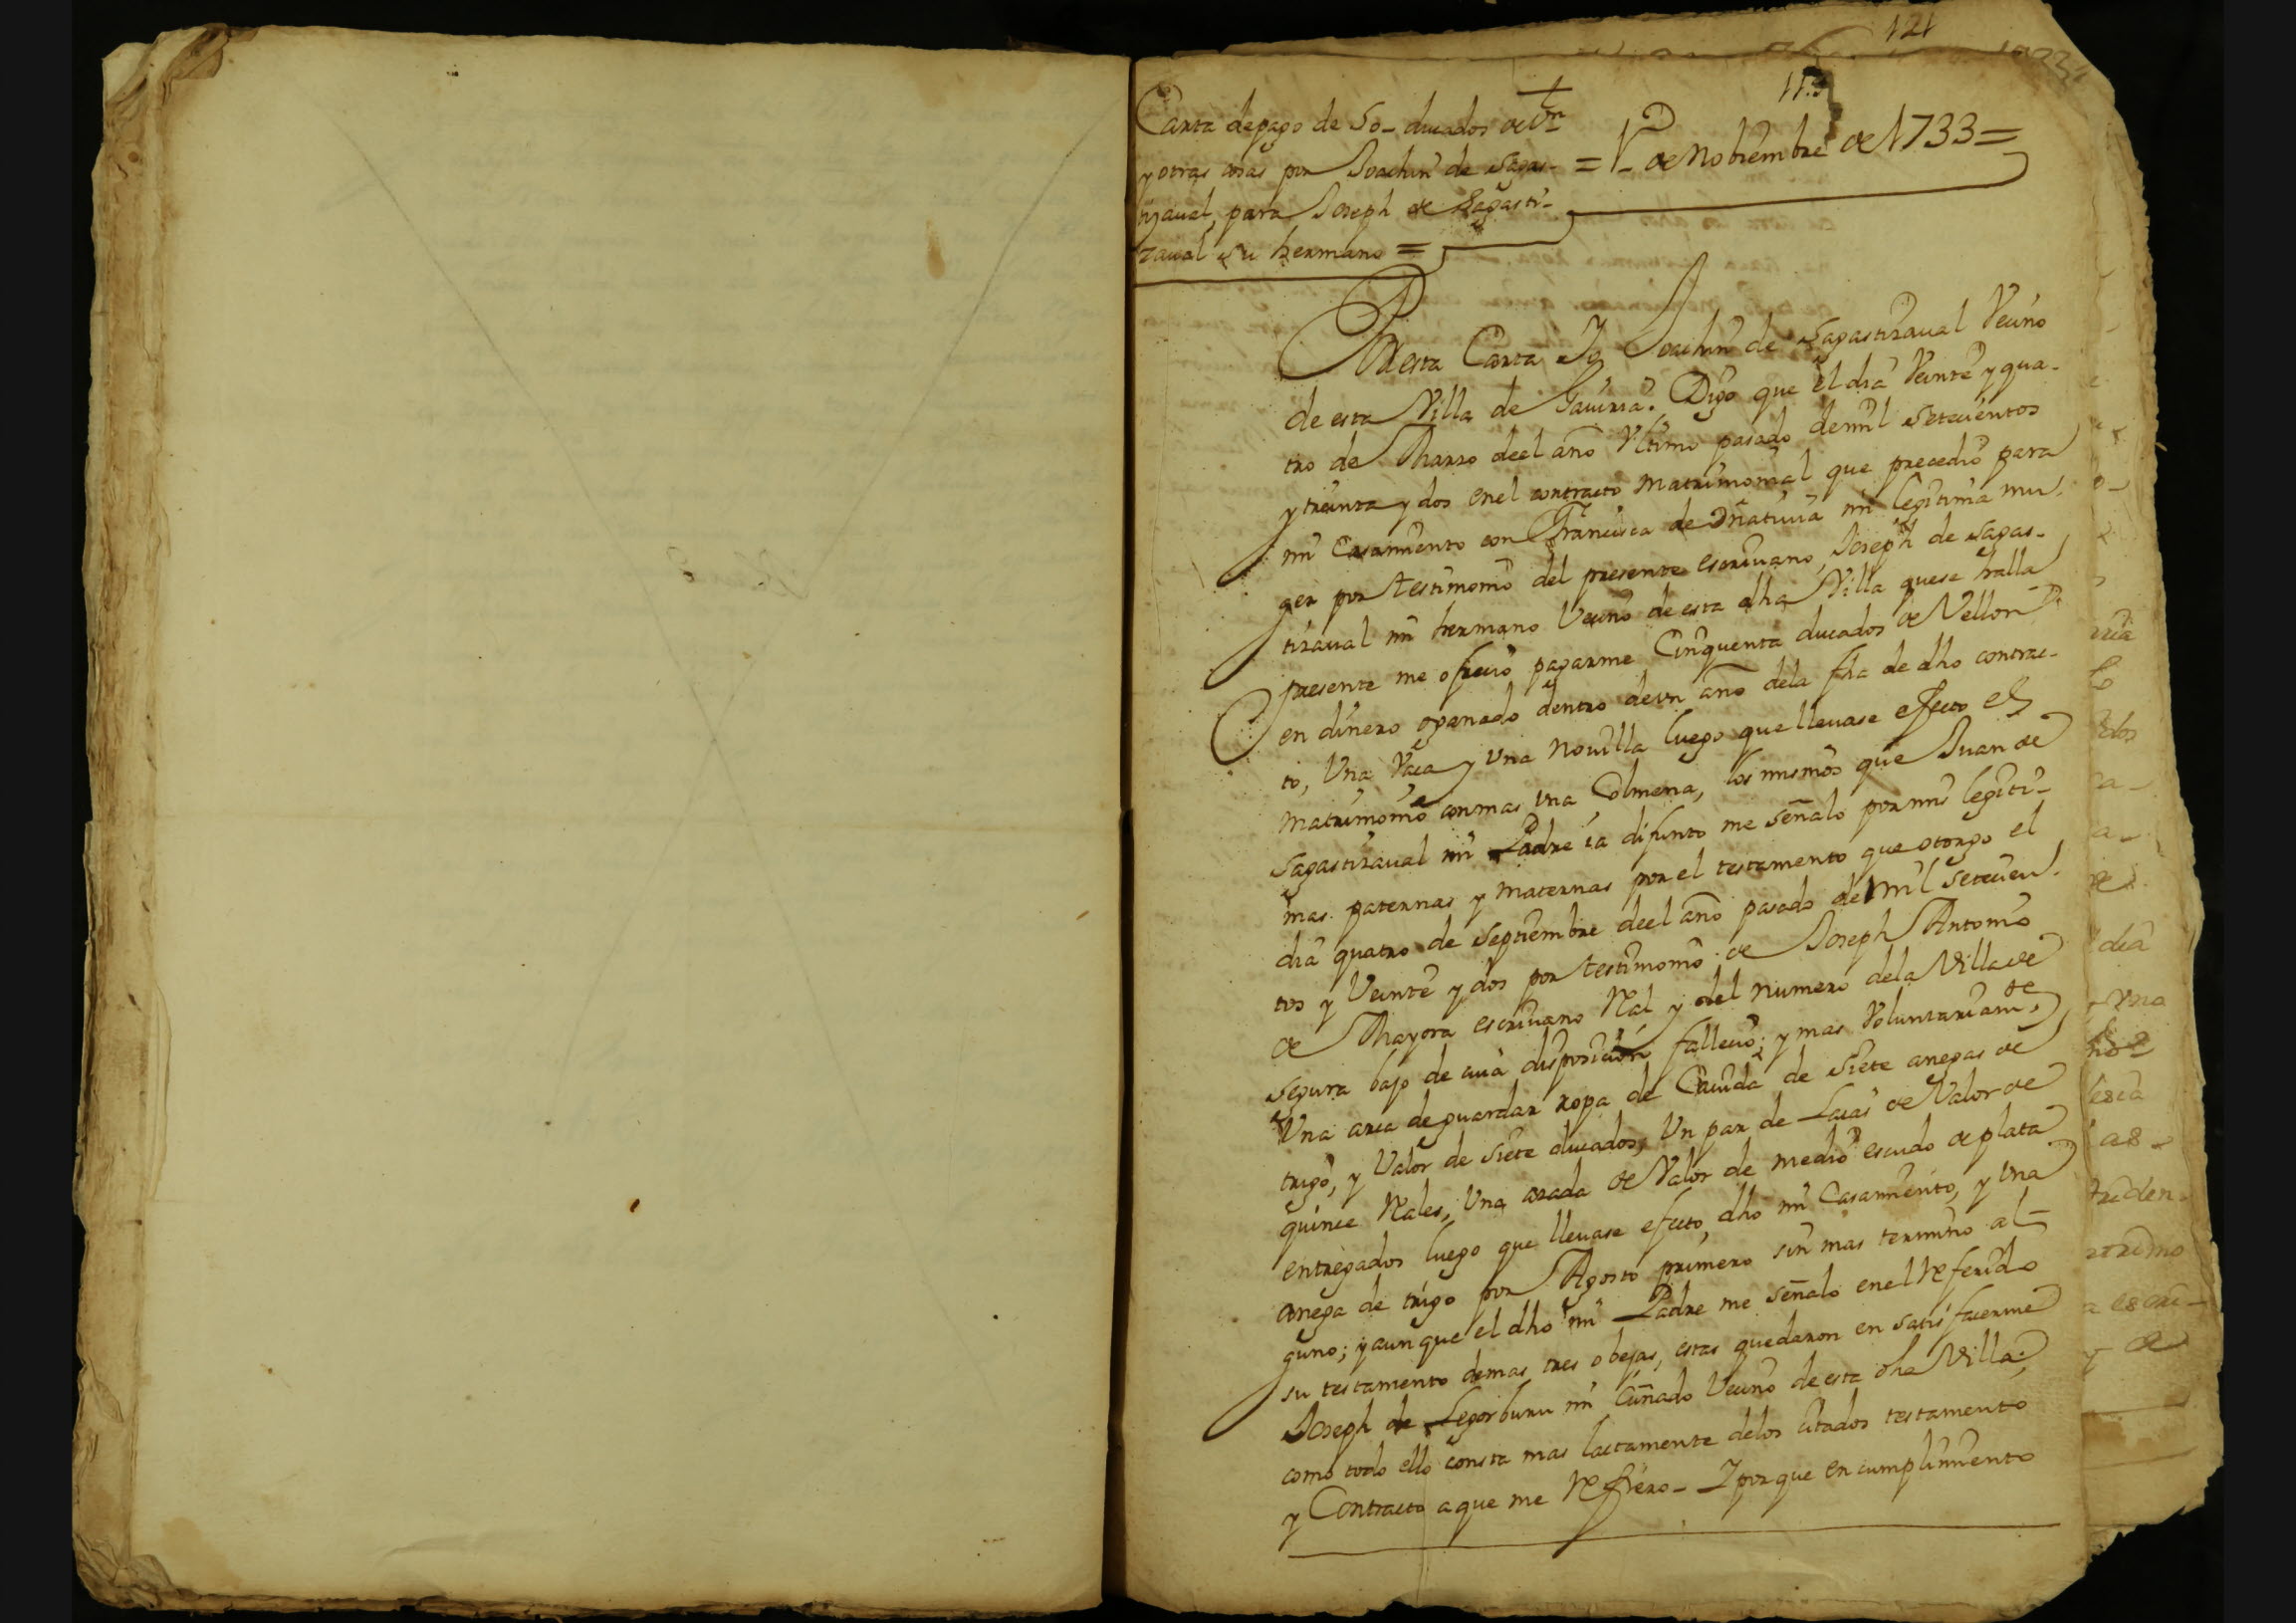 121
113
Carta depago de 50- ducados de Vn
y otras cosas por Joachin de Sagas-
tizaual, para Joseph de Sagasti-
zaual su hermano =
= 1 de Nobiembre de 1733 =
Por esta Carta Yo Joachin de Sagastizaual Vecino
de esta Villa de Gauiria. Digo que el dia Veinte y qua-
tro de Marzo deel año Vltimo pasado demil Setecientos
y treinta y dos enel contracto Matrimonial que precedio para
mi Casamiento con Francisca de Oñatiuia mi legitima mu-
ger por testimonio del presente escriuano, Joseph de Sagas-
tizaual mi hermano Vecino de esta dha Villa quese halla
presente me ofrecio pagarme Cinquenta ducados de Vellon
en dinero oganado dentro devn año dela fha de dho contrac-
to, Vna Vaca y Vna Nouilla luego que lleuase efecto el
Matrimonio conmas Vna Colmena, los mismos que Juan de
Sagastizaual mi Padre ia difunto me señalo por mis legiti-
mas paternas y maternas por el testamento que otorgo el
dia quatro de Septiembre deel año pasado de Mil Setecien-
tos y Veinte y dos por testimonio de Joseph Antonio
de Mayora escriuano Real y del numero dela Villa de
Segura bajo de cuia disposicion fallecio; y mas Voluntariamte
Vna arca de guardar ropa de Cauida de siete anegas de
trigo, y Valor de siete ducados, Vn par de Laias de Valor de
quince Rales, Vna azada de Valor de medio escudo de plata
entregados luego que lleuase efecto, dho mi Casamiento, y Vna
anega de trigo por Agosto primero sin mas termino al-
guno; y aunque el dho mi Padre me señalo enel Referido
su testamento demas tres obejas, estas quedaron en satisfacerme
Joseph de Legorburu mi Cuñado Vecino de esta dha Villa;
como todo ello consta mas lactamente delos citados testamento
y Contracto aque me Refiero- Y porque en cumplimiento